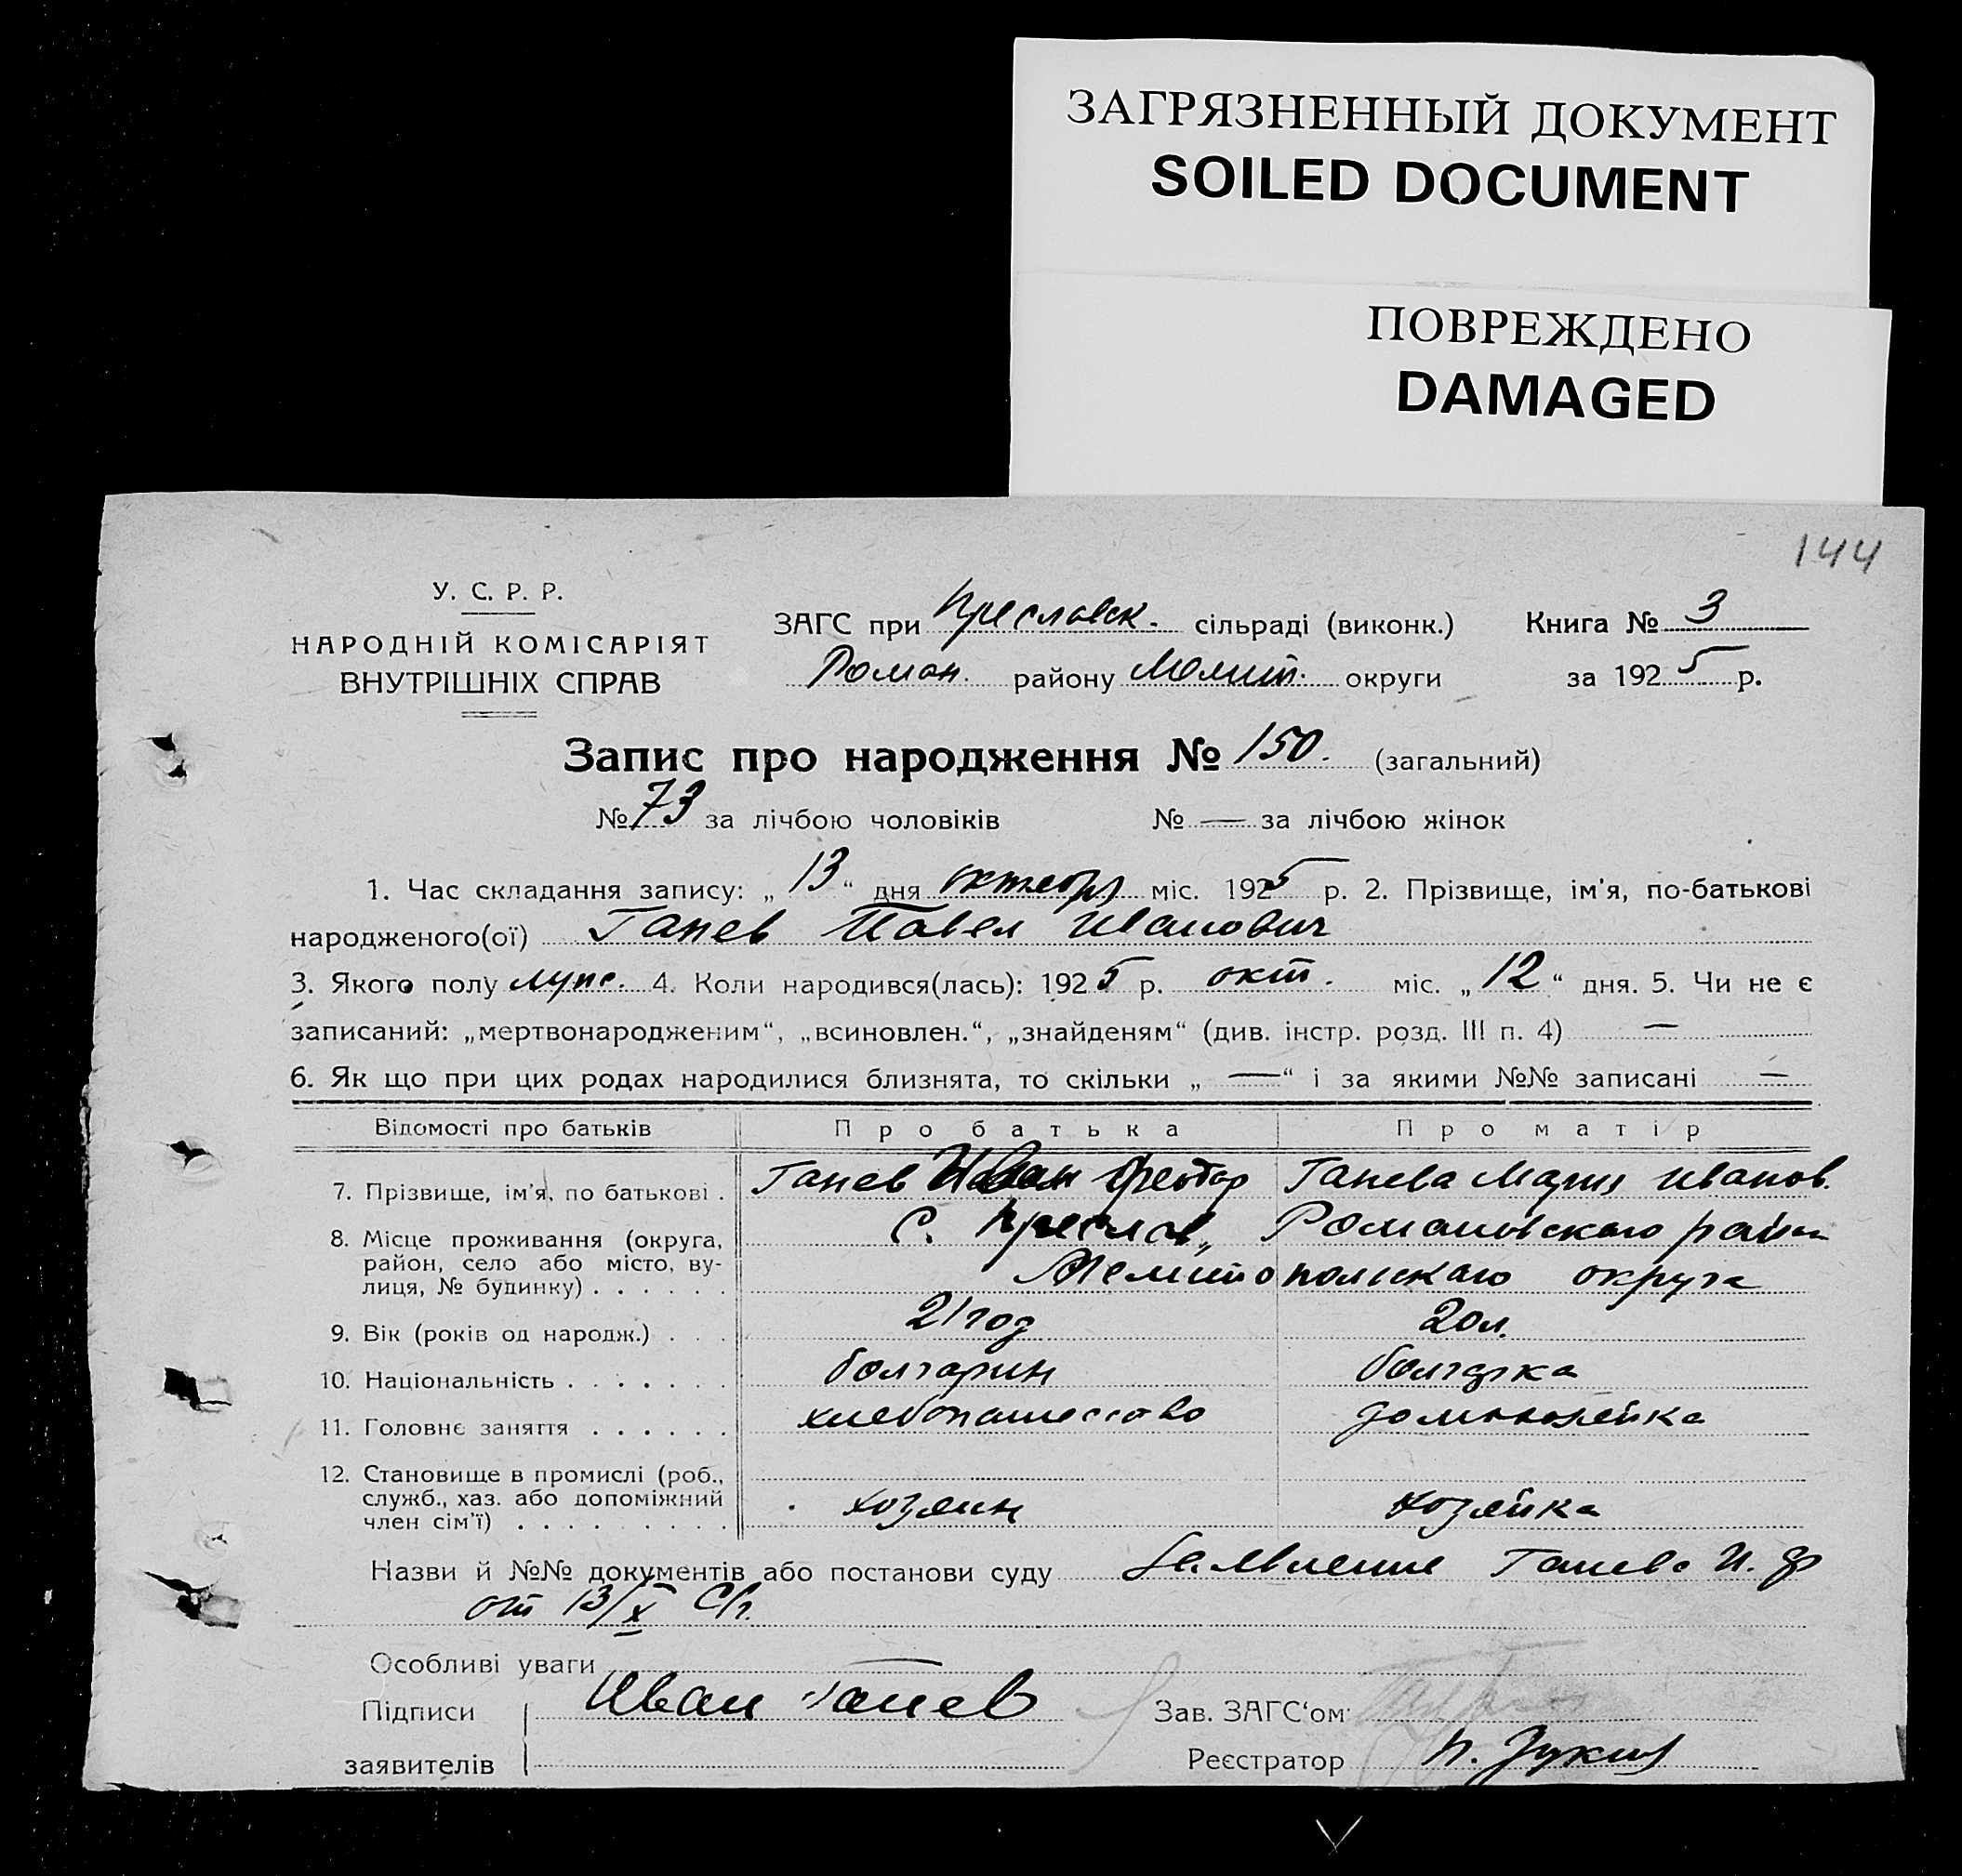 ЗАГРЯЗНЕННЫЙ ДОКУМЕНТ
SOILED DOCUMENT
ПОВРЕЖДЕНО
DAMAGED
144
У. С. Р. Р.
НАРОДНІЙ КОМІСАРІЯТ
ВНУТРІШНІХ СПРАВ
ЗАГС при Преславск. сільраді (виконк.)
Роман. району Мелит. округи
Книга № 3
за 1925 р.
Запис про народження № 150. (загальний)
№ 73 за лічбою чоловіків № — за лічбою жінок
1. Час складання запису: „ 13 “ дня октября міс. 1925 р. 2. Прізвище, ім'я, по-батькові
народженого(ої) Ганев Павел Иванович
3. Якого полу муж. 4. Коли народився(лась): 1925 р. окт. міс. „ 12 “ дня. 5. Чи не є
записаний: „мертвонародженим“, „всиновлен.“, „знайденям“ (див. інстр. розд. III п. 4) —
6. Як що при цих родах народилися близнята, то скільки „ — “ і за якими №№ записані —
Відомості про батьків Про батька Про матір
7. Прізвище, ім'я, по батькові . Ганев Иван Федор Ганева Мария Иванов.
8. Місце проживання (округа, район, село або місто, вулиця, № будинку) . . . . . . с. Преслав, Романовского район
Мелитопольского округа
9. Вік (років од народж.) . . . 21 год 20 л.
10. Національність . . . . . . . болгарин болгарка
11. Головнє заняття . . . . . . хлебопашество домохозяйка
12. Становище в промислі (роб.,
служб., хаз. або допоміжний
член сім'ї) . . . . . . . . . хозяин хозяйка
Назви й №№ документів або постанови суду Заявление Ганева И. Ф
от 13/X С/г.
Особливі уваги —
Підписи Иван Ганев Зав. ЗАГС‘ом
заявителів Реєстратор